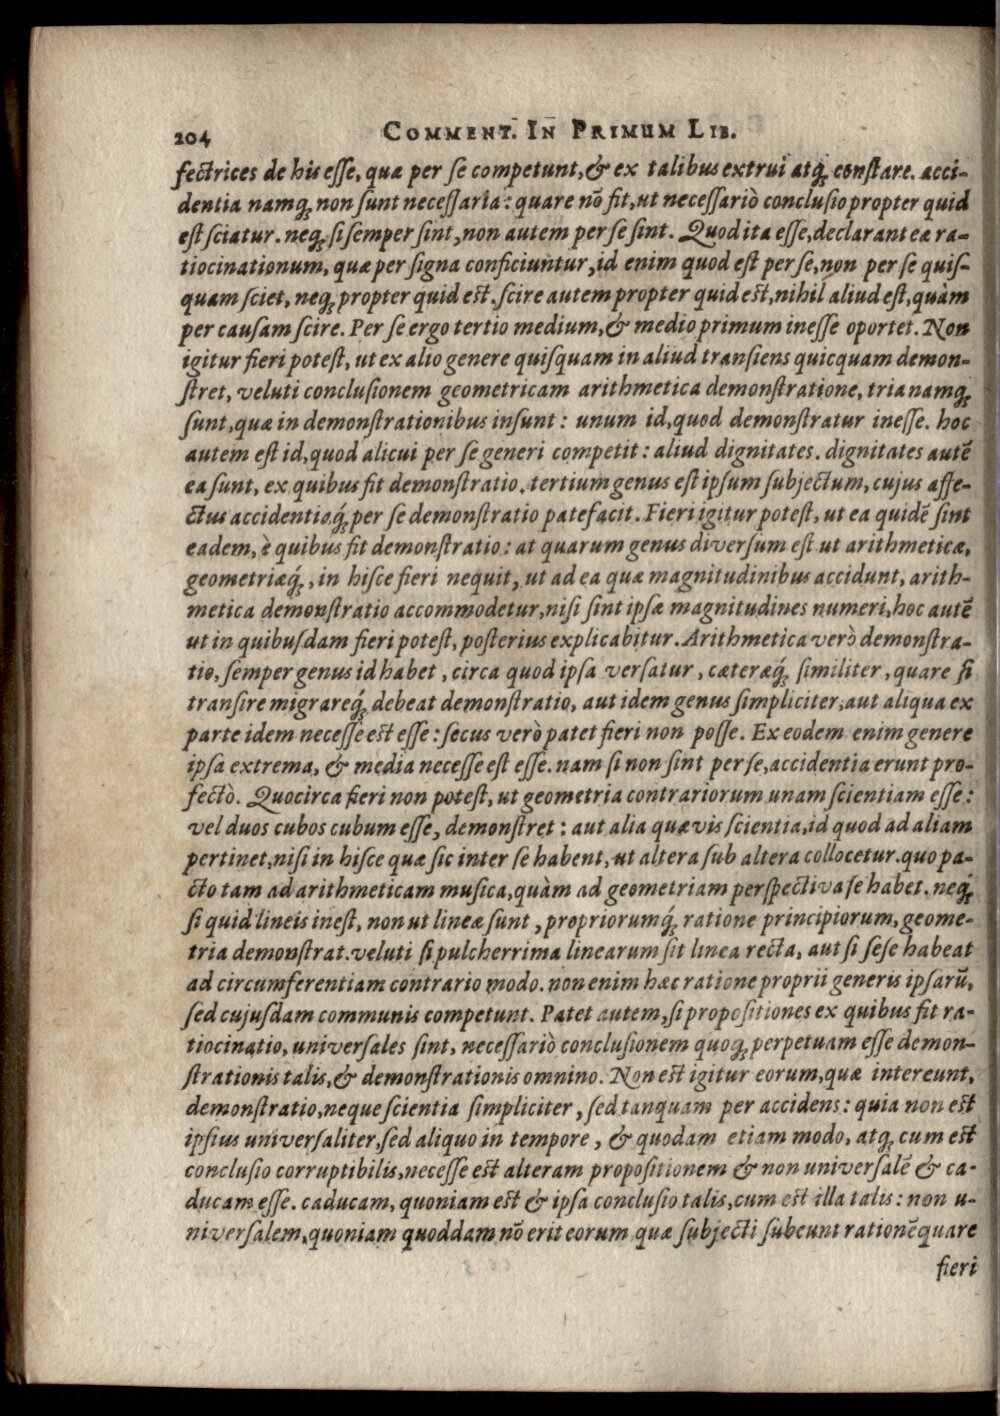 204 COMMENT. IN PRIMUM LIB.
fectrices de his esse, quæ per se competunt, & ex talibus extrui atq́; constare. acci-
dentia namq́; non sunt necessaria: quare nõ fit, ut necessariò conclusio propter quid
est sciatur. neq́; si semper sint, non autem per se sint. Quod ita esse, declarant eæ ra-
tiocinationum, quæ per signa conficiuntur, id enim quod est per se, non per se quis-
quam sciet, neq́; propter quid est. scire autem propter quid est, nihil aliud est, quàm
per causam scire. Per se ergo tertio medium, & medio primum inesse oportet. Non
igitur fieri potest, ut ex alio genere quisquam in aliud transiens quicquam demon-
stret, veluti conclusionem geometricam arithmetica demonstratione, tria namq́;
sunt, quæ in demonstrationibus insunt: unum id, quod demonstratur inesse. hoc
autem est id, quod alicui per se generi competit: aliud dignitates. dignitates autẽ
ea sunt, ex quibus fit demonstratio. tertium genus est ipsum subjectum, cujus affe-
ctus accidentiaq́; per se demonstratio patefacit. Fieri igitur potest, ut ea quidẽ sint
eadem, è quibus fit demonstratio: at quarum genus diversum est ut arithmeticæ,
geometriæq́;, in hisce fieri nequit, ut ad ea quæ magnitudinibus accidunt, arith-
metica demonstratio accommodetur, nisi sint ipsæ magnitudines numeri, hoc autẽ
ut in quibusdam fieri potest, posterius explicabitur. Arithmetica verò demonstra-
tio, semper genus id habet, circa quod ipsa versatur, cæteræq́; similiter, quare si
transire migrareq́; debeat demonstratio, aut idem genus simpliciter, aut aliqua ex
parte idem necesse est esse: secus verò patet fieri non posse. Ex eodem enim genere
ipsa extrema, & media necesse est esse. nam si non sint per se, accidentia erunt pro-
fectò. Quocirca fieri non potest, ut geometria contrariorum unam scientiam esse:
vel duos cubos cubum esse, demonstret: aut alia quævis scientia, id quod ad aliam
pertinet, nisi in hisce quæ sic inter se habent, ut altera sub altera collocetur. quo pa-
cto tam ad arithmeticam musica, quàm ad geometriam perspectiva se habet. neq́;
si quid lineis inest, non ut lineæ sunt, propriorumq́; ratione principiorum, geome-
tria demonstrat. veluti si pulcherrima linearum sit linea recta, aut si sese habeat
ad circumferentiam contrario modo. non enim hæc ratione proprii generis ipsarũ,
sed cujusdam communis competunt. Patet autem, si propositiones ex quibus fit ra-
tiocinatio, universales sint, necessariò conclusionem quoq́; perpetuam esse demon-
strationis talis, & demonstrationis omnino. Non est igitur eorum, quæ intereunt,
demonstratio, neque scientia simpliciter, sed tanquam per accidens: quia non est
ipsius universaliter, sed aliquo in tempore, & quodam etiam modo, atq́; cum est
conclusio corruptibilis, necesse est alteram propositionem & non universalẽ & ca-
ducam esse. caducam, quoniam est & ipsa conclusio talis, cum est illa talis: non u-
niversalem, quoniam quoddam nõ erit eorum quæ subjecti subeunt rationẽ quare
fieri